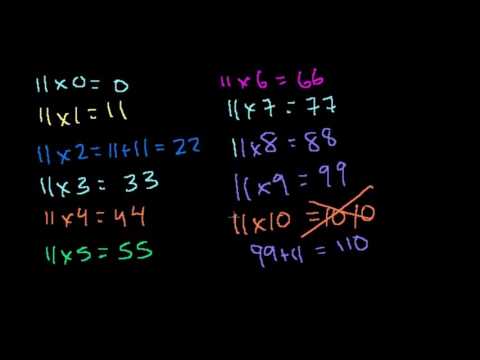 11 x 0 = 0
11 x 1 = 11
11 x 2 = 11+11 = 22
11 x 3 = 33
11 x 4 = 44
11 x 5 = 55
11 x 6 = 66
11 x 7 = 77
11 x 8 = 88
11 x 9 = 99
11 x 10 = 10 10
99+11 = 110